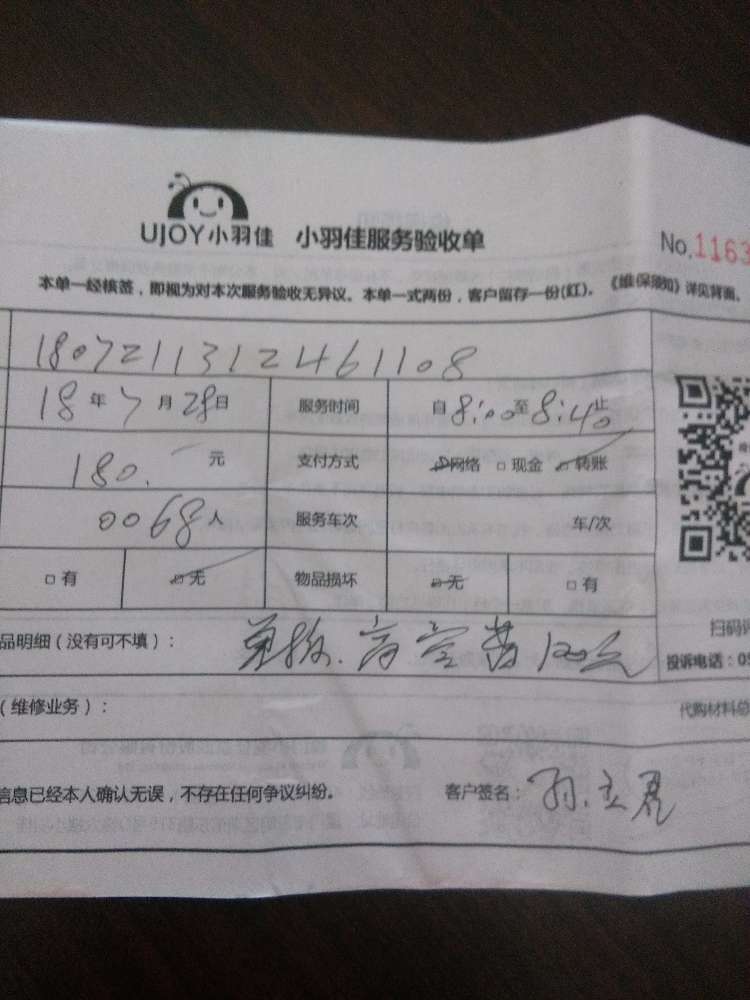 UJOY小羽佳 小羽佳服务验收单 No.1163
本单一经核签，即视为对本次服务验收无异议。本单一式两份，客户留存一份(红)。《维保须知》详见背面。
1807211312461108
18年7月28日 服务时间 自8:00至8:40止
180.元 支付方式 网络 □现金 转账
0068人 服务车次 车/次
□有 □无 物品损坏 □无 □有
品明细（没有可不填）：
扫码评
投诉电话：05
（维修业务）：
代购材料总
信息已经本人确认无误，不存在任何争议纠纷。 客户签名：